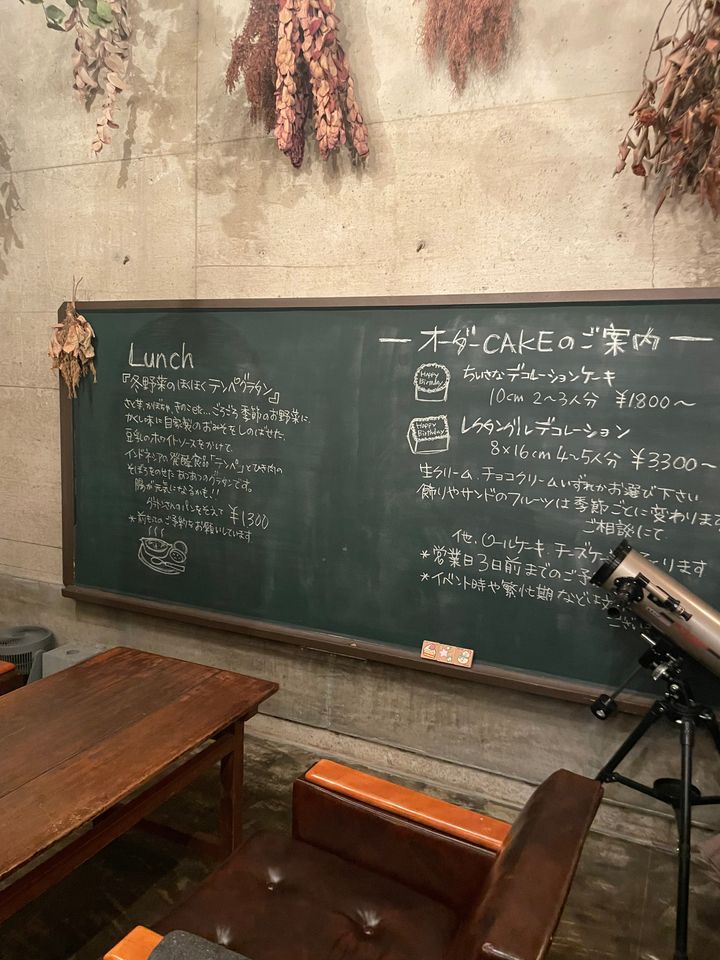 Lunch
『冬野菜のほくほくテンペグラタン』
さと芋、かぼちゃ、きのこetc... ごろごろ季節のお野菜に、
かくし味に自家製のおみそをしのばせた、
豆乳のホワイトソースをかけて、
インドネシアの発酵食品「テンペ」とひき肉の
そぼろをのせたあつあつのグラタンです。
腸が元気になるかも!!
さんのパンをそえて ¥1300
*前もってのご予約をお願いしています
ー オーダーCAKEのご案内 ー
Happy Birthday
ちいさなデコレーションケーキ
10cm 2〜3人分 ¥1800〜
Happy Birthday
レクタングルデコレーション
8×16cm 4〜5人分 ¥3300〜
生クリーム、チョコクリームいずれかお選び下さい
飾りやサンドのフルーツは季節ごとに変わりま
ご相談にて
他、ロールケーキ、チーズケ ります
*営業日3日前までのご予
*イベント時や繁忙期などは
ござい